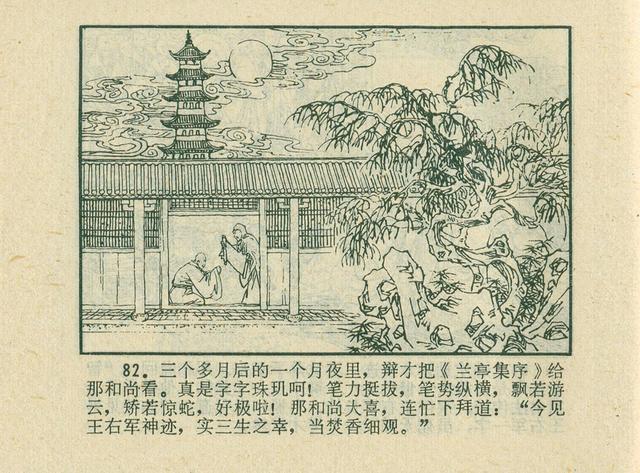 82。三个多月后的一个月夜里，辩才把《兰亭集序》给
那和尚看。真是字字珠玑呵！笔力挺拔，笔势纵横，飘若游
云，矫若惊蛇，好极啦！那和尚大喜，连忙下拜道：“今见
王右军神迹，实三生之幸，当焚香细观。”